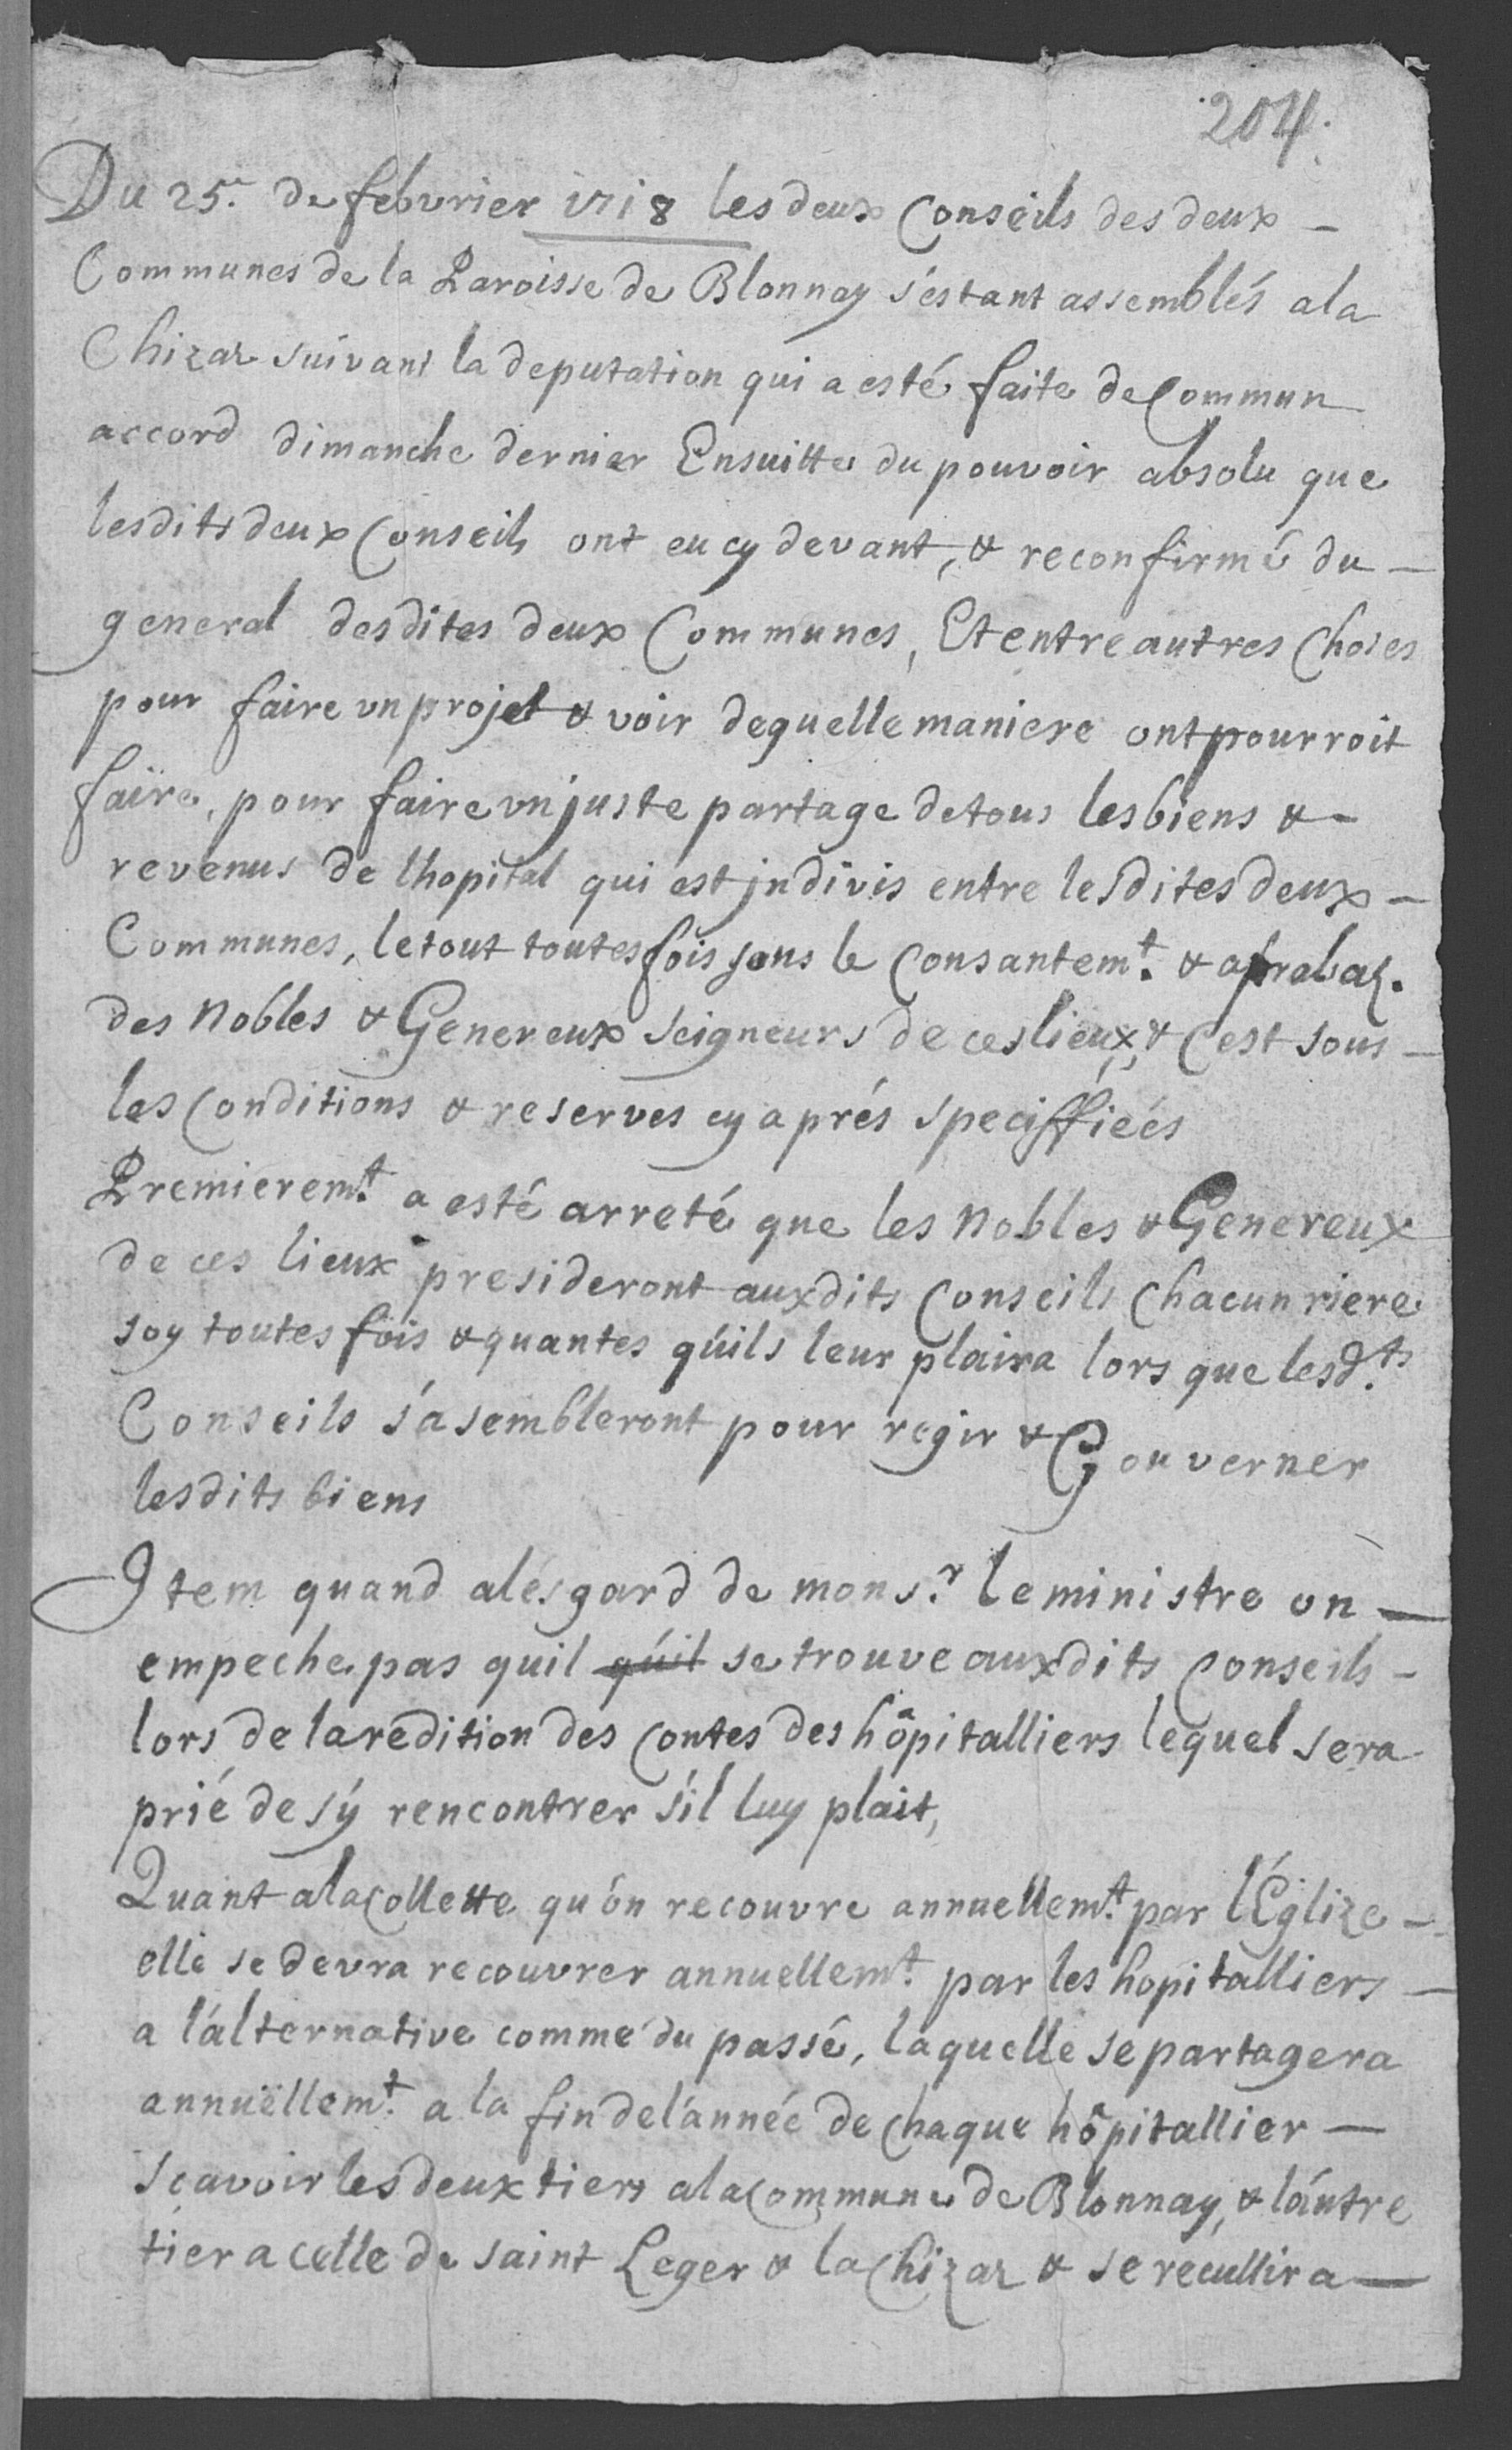 204.
Du 25.e de febvrier 1718 les deux Conseils des deux -
Communes de la Paroisse de Blonnay s'estant assemblés a la
Chizaz suivant la deputation qui a esté faite de Commun
accord dimanche dernier Ensuitte du pouvoir absolu que
lesdits deux Conseils ont eu cy devant, & reconfirmé du -
general desdites deux Communes, Et entre autres Choses
pour faire un projet & voir de quelle maniere ont pourroit
faire, pour faire un juste partage de tous les biens & -
revenus de lhopital qui est jndivis entre lesdites deux -
Communes, le tout toutesfois sous le Consantem.t &
des Nobles & Genereux seigneurs de ces lieux, & C'est sous -
les Conditions & reserves cy aprés speciffiéés
Premierem.t a esté arreté que les Nobles & Genereux
de ces lieux presideront auxdits Conseils Chacun riere
soy toutes fois & quantes qu'ils leur plaira lors que lesd.ts
Conseils s'asembleront pour regir & Gouverner
lesdits biens
Item quand a lésgard de mons.r le ministre on -
empeche pas quil qu'il se trouve auxdits Conseils -
lors de la redition des Contes des hôpitalliers lequel sera
prié de s'y rencontrer s'il luy plait,
Quant a la Collette qu'on recouvre annuellem.t par l'Eglize -
elle se devra recouvrer annuellem.t par les hopitalliers -
a l'alternative comme du passé, laquelle se partagera
annuëllem.t a la fin de l'année de Chaque hôpitallier -
Sçavoir les deux tiers a la Commune de Blonnay, & l'autre
tier a celle de saint Leger & la Chizaz & se recullira -